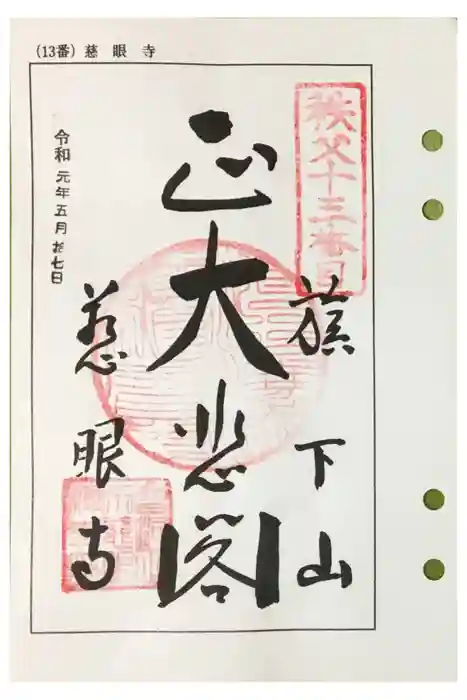 (13番) 慈眼寺
秩父十三番目
旗下山
正大悲閣
慈眼寺
令和元年五月廿七日